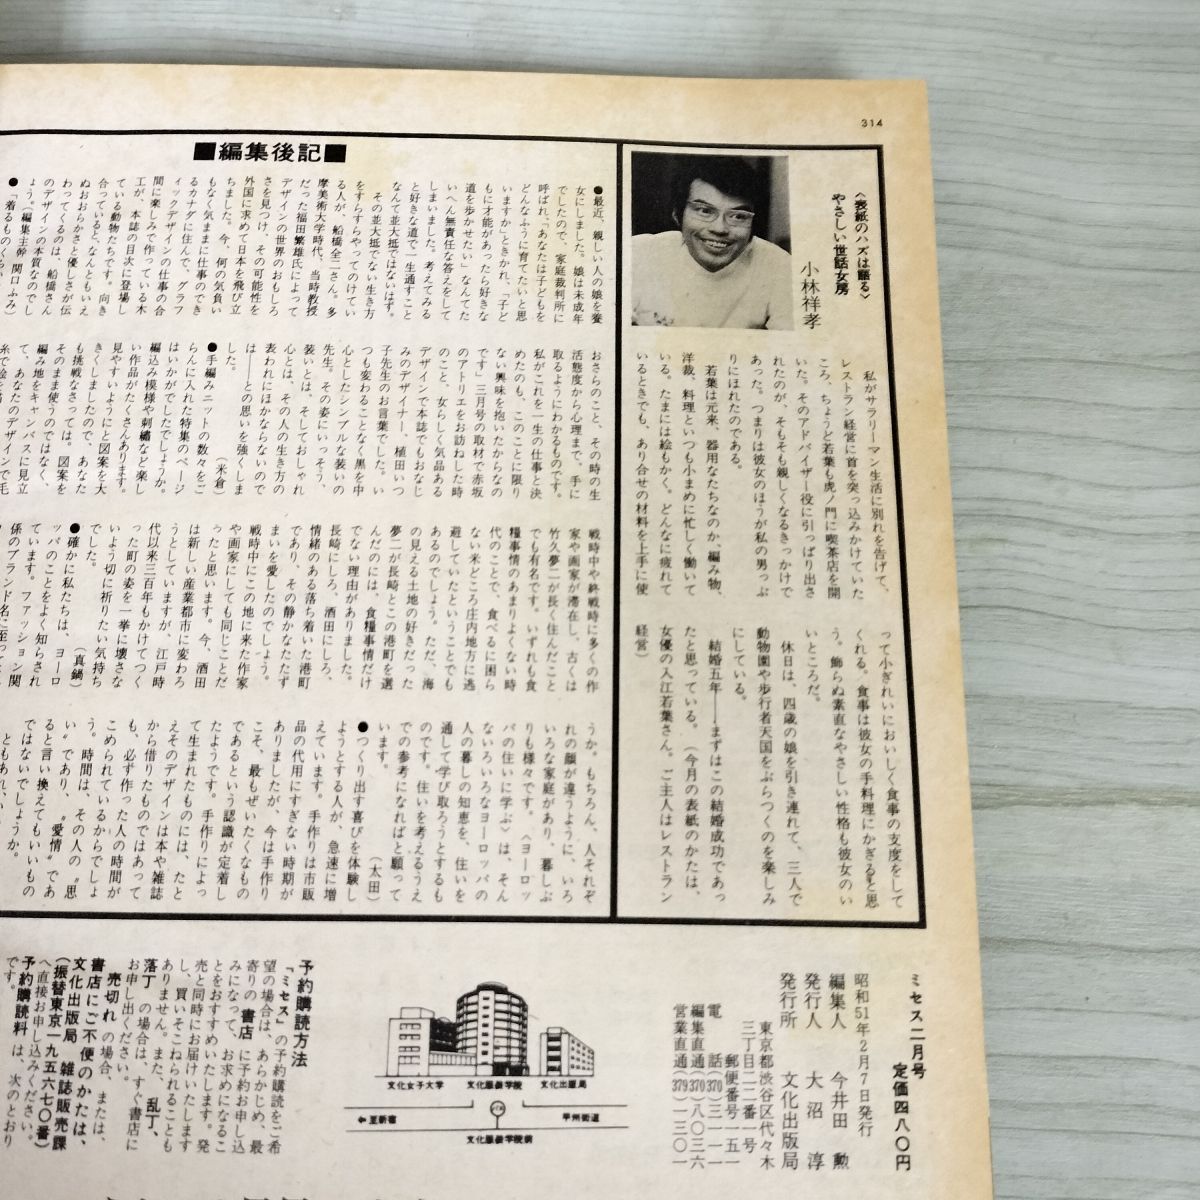 314
〈表紙のハズは語る〉
やさしい世話女房
小林祥孝
私がサラリーマン生活に別れを告げて、
レストラン経営に首を突っ込みかけていた
ころ、ちょうど若葉も虎ノ門に喫茶店を開
いた。そのアドバイザー役に引っぱり出さ
れたのが、そもそも親しくなるきっかけで
あった。つまりは彼女のほうが私の男っぷ
りにほれたのである。
若葉は元来、器用なたちなのか、編み物、
洋裁、料理といつも小まめに忙しく働いて
いる。たまには絵もかく。どんなに疲れて
いるときでも、あり合せの材料を上手に使
って小ぎれいにおいしく食事の支度をして
くれる。食事は彼女の手料理にかぎると思
う。飾らぬ素直なやさしい性格も彼女のい
いところだ。
休日は、四歳の娘を引き連れて、三人で
動物園や歩行者天国をぶらつくのを楽しみ
にしている。
結婚五年——まずはこの結婚成功であっ
たと思っている。（今月の表紙のかたは、
女優の入江若葉さん。ご主人はレストラン
経営）
■編集後記■
●最近、親しい人の娘を養
女にしました。娘は未成年
でしたので、家庭裁判所に
呼ばれ、「あなたは子どもを
どんなふうに育てたいと思
いますか」ときかれ、「子ど
もに才能があったら好きな
道を歩かせたい」なんてた
いへん無責任な答えをして
しまいました。考えてみる
と好きな道で一生通すこと
なんて並大抵ではないはず。
その並大抵でない生き方
をすらすらやってのけてい
る人が、船橋全二さん。多
摩美術大学時代、当時教授
だった福田繁雄氏によって
デザインの世界のおもしろ
さを見つけ、その可能性を
外国に求めて日本を飛び立
ちました。今、何の気負い
もなく気ままに仕事のでき
るカナダに住んで、グラフ
ィックデザインの仕事の合
間に楽しみで作っている木
工が、本誌の目次に登場し
ている動物たちです。向き
合っていると、なんともいえ
ぬおおらかさと楽しさが伝
わってくるのは、船橋さん
のデザインの本質なのでし
ょう。（編集主幹 関口ふみ）
おさらのこと、その時の生
活態度から心理まで、手に
取るようにわかるものです。
私がこれを一生の仕事と決
めたのも、このことに限り
ない興味を抱いたからなの
です」三月号の取材で赤坂
のアトリエをお訪ねした時
のこと、女らしく気品ある
デザインで本誌でもおなじ
みのデザイナー、植田いつ
子先生のお言葉でした。い
つも変わることなく黒を中
心としたシンプルな装いの
先生。その姿にいっそう、
装いとは、そしておしゃれ
心とは、その人の生き方の
表われにほかならないので
は——との思いを強くしま
した。（米倉）
●手編みニットの数々をご
らんに入れた特集のページ
はいかがでしたでしょうか。
編込み模様や刺繡など楽し
い作品がたくさんあります。
見やすいようにと図案を大
きくしましたので、あなた
も挑戦なさっては。図案を
そのまま使うのではなく、
編み地をキャンバスに見立
て、あなたのデザインで毛
戦時中や終戦時に多くの作
家や画家が滞在し、古くは
竹久夢二が長く住んだこと
でも有名です。いずれも食
糧事情のあまりよくない時
代のことで、食べるに困ら
ない米どころ庄内地方に逃
避していたということでも
あるのでしょう。ただ、海
の見える土地の好きだった
夢二が長崎とこの港町を選
んだのには、食糧事情だけ
でない理由がありました。
長崎にしろ、酒田にしろ、
情緒のある落ち着いた港町
であり、その静かなたたず
まいを愛したのでしょう。
戦時中にこの地に来た作家
や画家にしても同じことだ
ったと思います。今、酒田
は新しい産業都市に変わろ
うとしていますが、江戸時
代以来三百年もかけてつく
った町の姿を一挙に壊さな
いよう切に祈りたい気持ち
でした。（真鍋）
●確かに私たちは、ヨーロ
ッパのことをよく知らされ
ています。ファッション関
係のブランド名に至っては
うか。もちろん、人それぞ
れの顔が違うように、いろ
いろな家庭があり、暮しぶ
りも様々です。〈ヨーロッ
パの住いに学ぶ〉は、そん
ないろいろなヨーロッパの
人の暮しの知恵を、住いを
通して学び取ろうとするも
のです。住いを考えるうえ
での参考になればと願って
います。（太田）
●つくり出す喜びを体験し
ようとする人が、急速に増
えています。手作りは市販
品の代用にすぎない時期が
ありましたが、今は手作り
こそ、最もぜいたくなもの
であるという認識が定着し
たようです。手作りによっ
て生まれたものには、たと
えそのデザインは本や雑誌
から借りたものではあって
も、必ず作った人の時間が
こめられているからでしょ
う。時間は、その人の〝思
い〟であり、〝愛情〟であ
ると言い換えてもいいもの
ではないでしょうか。
ミセス二月号 定価四八〇円
昭和51年2月7日発行
編集人 今井田 勲
発行人 大沼 淳
発行所 文化出版局
東京都渋谷区代々木
三丁目二二番一号
郵便番号一五一
電話(370)三一一一
編集直通(370)八〇三六
営業直通(379)一三〇一
文化女子大学
文化服装学院
文化出版局
←至新宿
甲州街道
文化服装学院前
予約購読方法
「ミセス」の予約購読をご希
望の場合は、あらかじめ、最
寄りの書店に予約お申し込
みになって、お求めになるこ
とをおすすめいたします。発
売と同時にお届けいたします
し、買いそこねられることも
ありません。また、乱丁、
落丁の場合は、すぐ書店に
お申し出ください。
売切れの場合、または、
書店にご不便のかたは、
文化出版局 雑誌販売課
（振替東京一九五六七〇番）
へ直接お申し込みください。
予約購読料は、次のとおり
です。